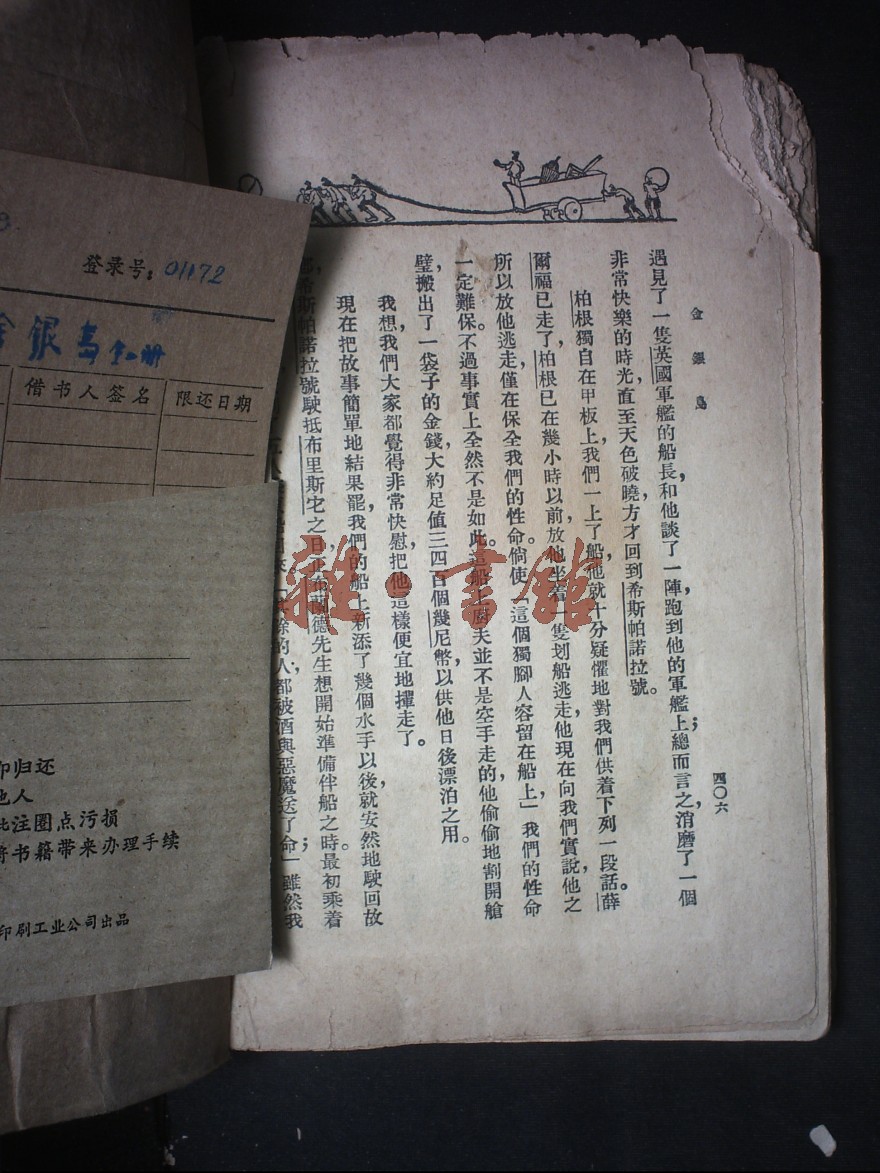 金銀島
四〇六
遇見了一隻英國軍艦的船長，和他談了一陣，跑到他的軍艦上；總而言之，消磨了一個
非常快樂的時光，直至天色破曉，方才回到希斯帕諾拉號。
柏根獨自在甲板上，我們一上了船，他就十分疑懼地對我們供着下列一段話。薛
爾福已走了，柏根已在幾小時以前放他坐着一隻划船逃走，他現在向我們實說，他之
所以放他逃走，僅在保全我們的性命，倘使「這個獨腳人容留在船上，」我們的性命
一定難保。不過事實上全然不是如此。這船上廚夫並不是空手走的，他偷偷地割開艙
壁，搬出了一袋子的金錢，大約足值三四百個幾尼幣，以供他日後漂泊之用。
我想，我們大家都覺得非常快慰，把他這樣便宜地撣走了。
現在把故事簡單地結果罷，我們的船上新添了幾個水手以後，就安然地駛回故
希斯帕諾拉號駛抵布里斯它之日，正
德先生想開始準備伴船之時。最初乘着
的人，都被酒與惡魔送了命」；雖然我
登录号：01172
銀島
册
借书人签名
限还日期
即归还
他人
注圈点污损
书籍带来办理手续
印刷工业公司出品
雜·書館